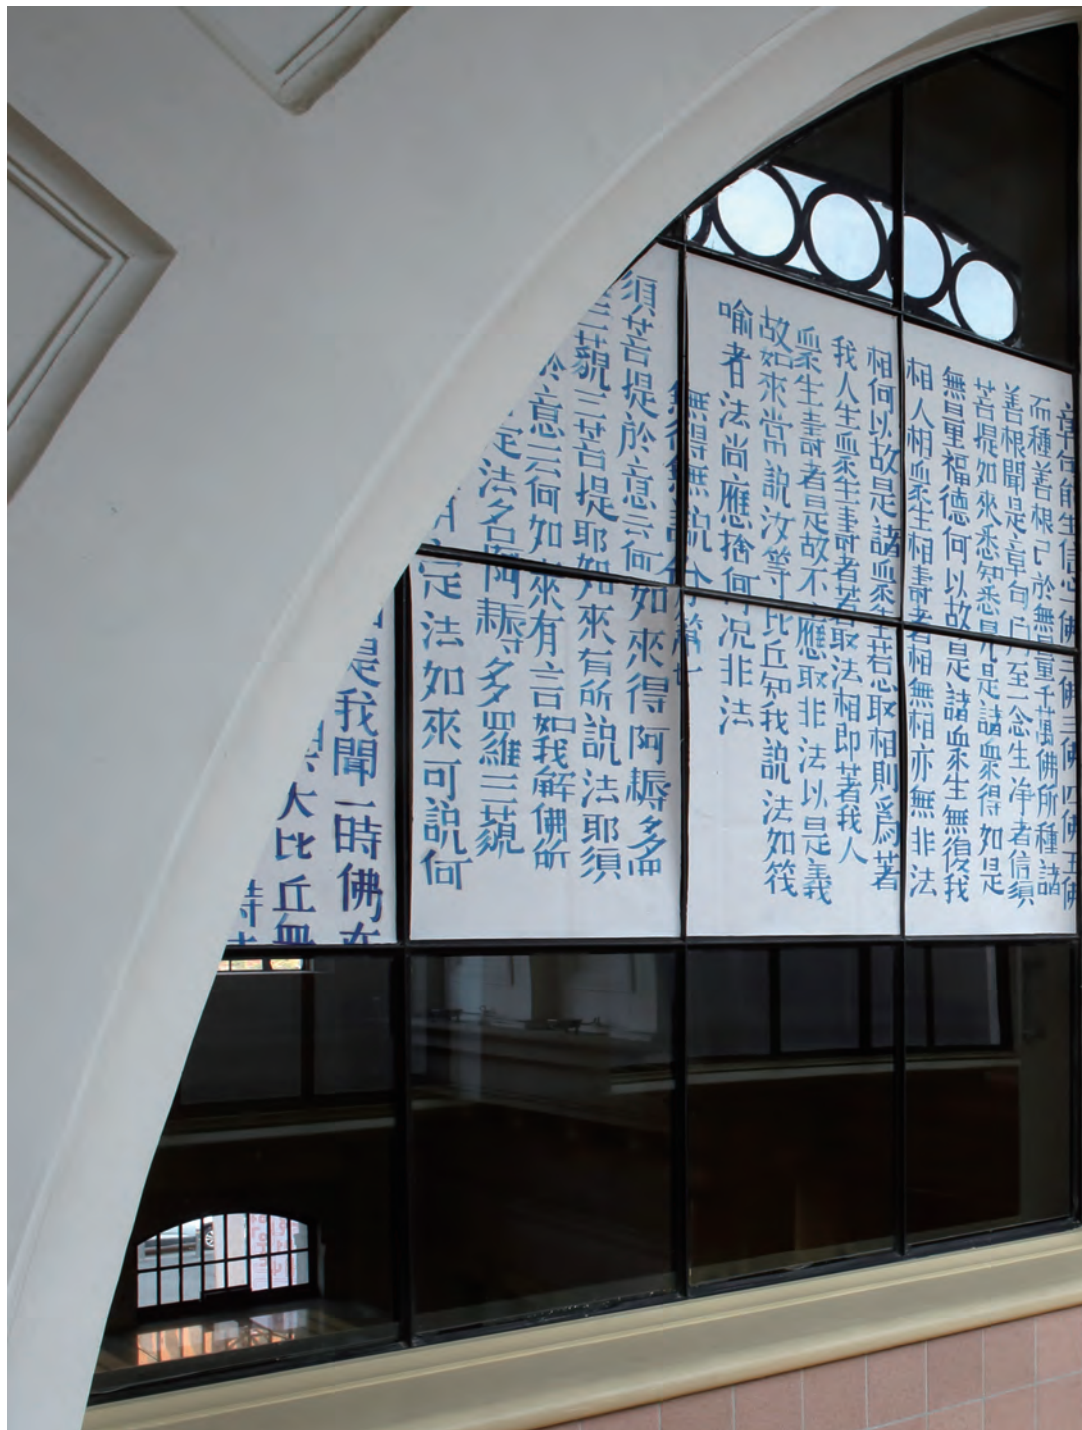 章句能生信 佛三佛四佛五佛
而種善根已於無量千萬佛所種諸
善根聞是章句乃至一念生净者信須
菩提如來悉知悉見是諸衆得如是
無量福德何以故是諸衆生無復我
相人相衆生相壽者相無相亦無非法
相何以故是諸衆生若心取相則爲著
我人生衆生壽者若取法相即著我人
衆生壽者是故不應取非法以是義
故如來常說汝等比丘知我說法如筏
喻者法尚應捨何况非法
無得無說分第七
須菩提於意云何如來得阿耨多羅
三藐三菩提耶如來有所說法耶須
於意云何如來有言如我解佛所
定法名阿耨多羅三藐
有定法如來可說何
是我聞一時佛在
大比丘衆
時